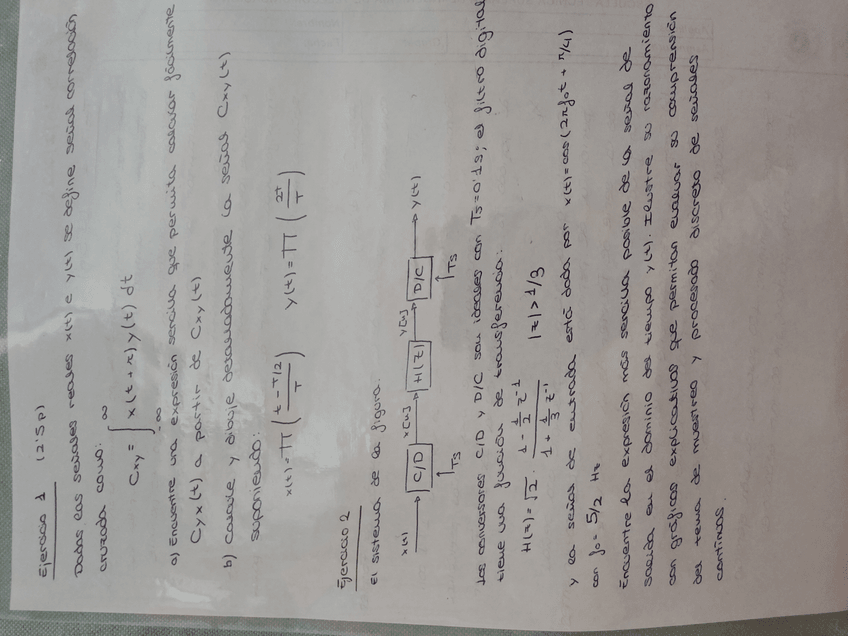 Ejercicio 1 (2'5p)
Dadas las señales reales x(t) e y(t) se define señal correlación
cruzada como:
Cxy = ∫_{-∞}^{∞} x(t+τ) y(t) dt
a) Encuentre una expresión sencilla que permita calcular fácilmente
Cyx(t) a partir de Cxy(t)
b) Calcule y dibuje detalladamente la señal Cxy(t)
suponiendo:
x(t) = Π((t - T/2)/T)   y(t) = Π(2t/T)
Ejercicio 2
El sistema de la figura.
x(t) → C/D → x[n] → H(z) → y[n] → D/C → y(t)
Ts Ts
Los conversores C/D y D/C son ideales con Ts=0'1s; el filtro digital
tiene una función de transferencia:
H(z) = √2 · (1 - 1/2 z^-1)/(1 + 1/3 z^-1)   |z| > 1/3
y la señal de entrada está dada por x(t)=cos(2πf₀t + π/4)
con f₀ = 5/2 Hz
Encuentre la expresión más sencilla posible de la señal de
salida en el dominio del tiempo y(t). Ilustre su razonamiento
con gráficos explicativos que permitan evaluar su comprensión
del tema de muestreo y procesado discreto de señales
continuas.